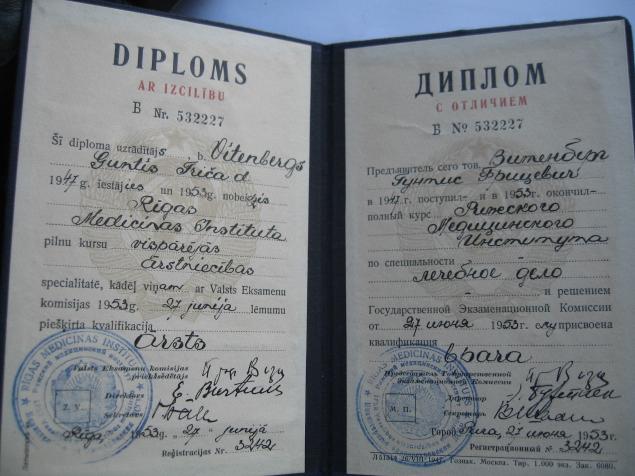 DIPLOMS
AR IZCILĪBU
B Nr. 532227
Šī diploma uzrādītājs b. Vitenbergs
Guntis Friča d.
1947 g. iestājies un 1953 g. nobeidzis
Rīgas
Medicīnas Institūta
pilnu kursu vispārējās
ārstniecības
specialitātē, kādēļ viņam ar Valsts Eksamenu
komisijas 1953 g. 27 jūnija lēmumu
piešķirta kvalifikācija
ārsts
Valsts Eksamenu komisijas
priekšsēdētājs
Direktors
Sekretārs
Z. V.
Rīgā 1953 g. "27" jūnijā
Reģistrācijas Nr. 3242
ДИПЛОМ
С ОТЛИЧИЕМ
В № 532227
Предъявитель сего тов. Витенберг
Гунтис Фрицевич
в 1947 г. поступил и в 1953 г. окончил
полный курс Рижского
Медицинского
Института
по специальности
лечебное дело
и решением
Государственной Экзаменационной Комиссии
от 27 июня 1953 г. ему присвоена
квалификация
врача
Председатель Государственной
Экзаменационной Комиссии
Директор
Секретарь
М. П.
Город Рига, 27 июня 1953 г.
Регистрационный № 3242
Гознак. Москва. Тир. 1.000 экз. Зак. 6080.